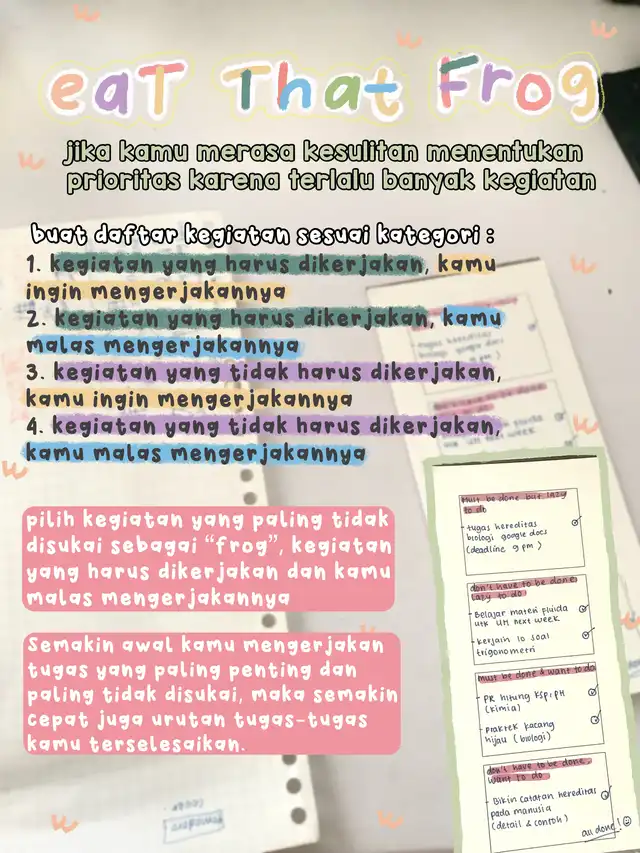 eaT That Frog
jika kamu merasa kesulitan menentukan
prioritas karena terlalu banyak kegiatan
buat daftar kegiatan sesuai kategori :
1. kegiatan yang harus dikerjakan, kamu
ingin mengerjakannya
2. kegiatan yang harus dikerjakan, kamu
malas mengerjakannya
3. kegiatan yang tidak harus dikerjakan,
kamu ingin mengerjakannya
4. kegiatan yang tidak harus dikerjakan,
kamu malas mengerjakannya
pilih kegiatan yang paling tidak
disukai sebagai "frog", kegiatan
yang harus dikerjakan dan kamu
malas mengerjakannya
Semakin awal kamu mengerjakan
tugas yang paling penting dan
paling tidak disukai, maka semakin
cepat juga urutan tugas-tugas
kamu terselesaikan.
Must be done but lazy
to do
- tugas hereditas
biologi google docs
(deadline 9 pm)
don't have to be done,
lazy to do
- Belajar materi fluida
utk UH next week
- kerjain 10 soal
trigonometri
must be done & want to do
- PR hitung Ksp, pH
(kimia)
- Praktek kacang
hijau (biologi)
don't have to be done,
want to do
- Bikin catatan hereditas
pada manusia
(detail & contoh)
all done!